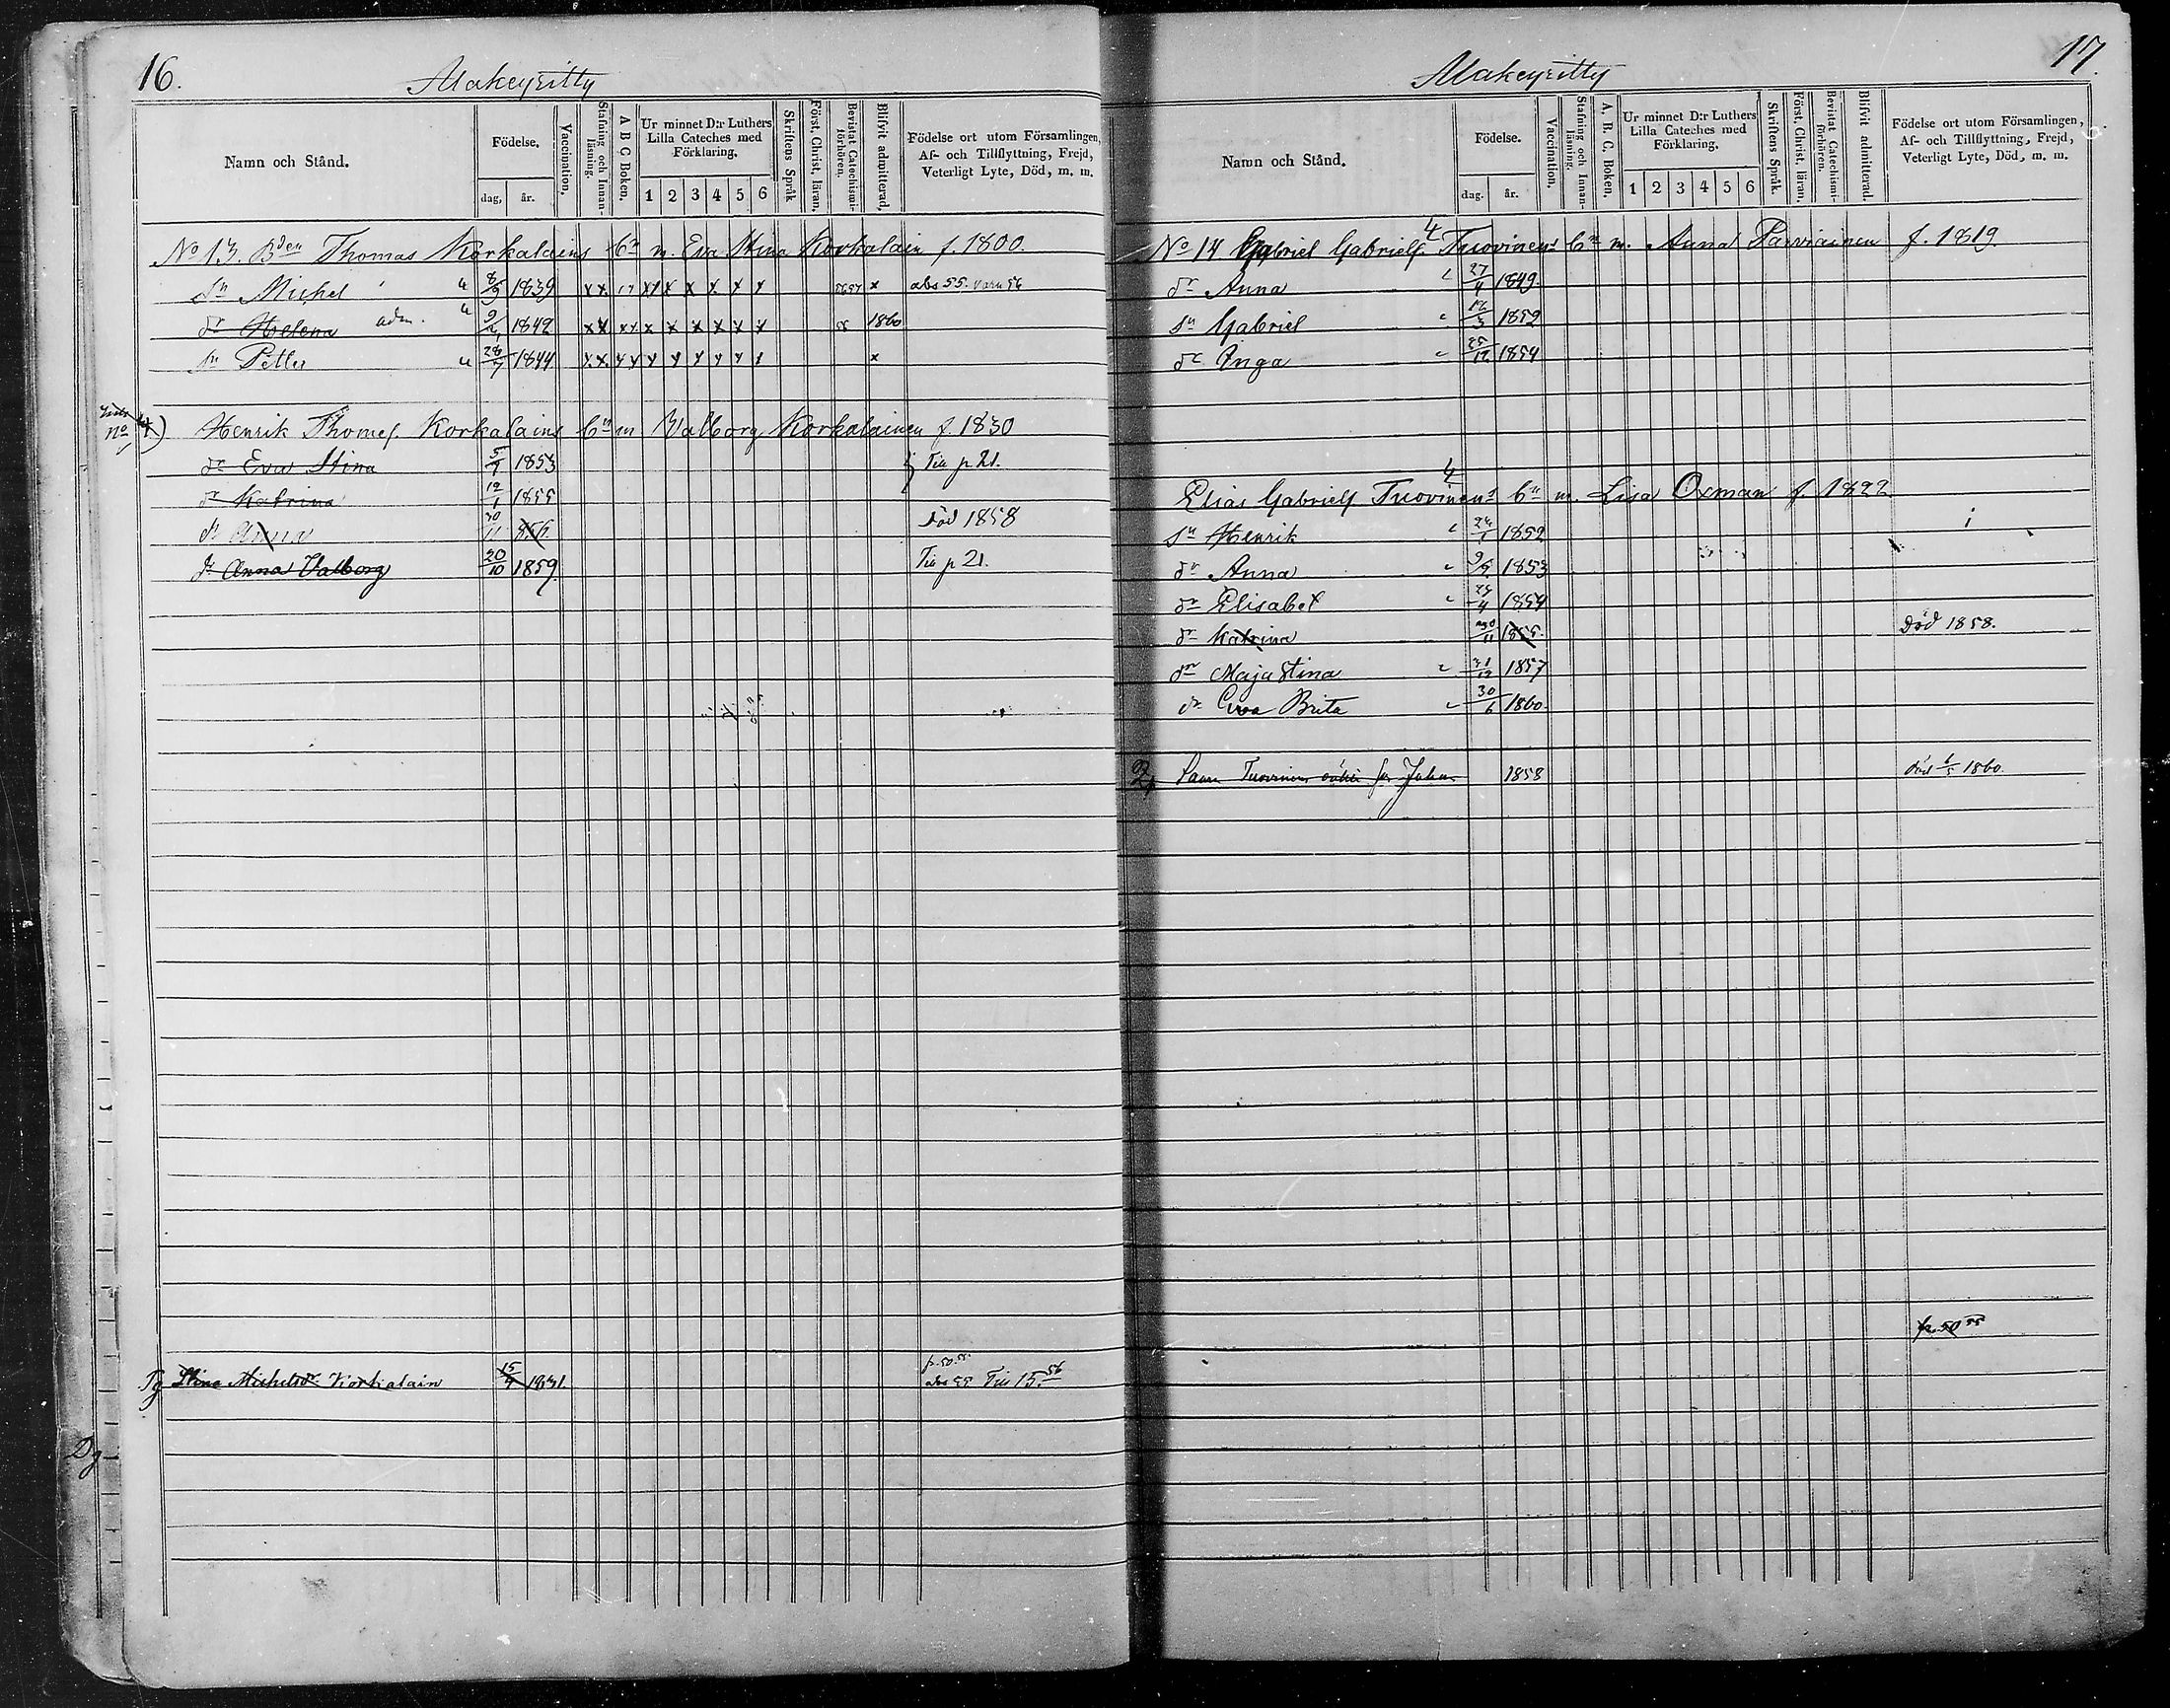 16.
Makeyritty
Namn och Stånd.
Födelse.
dag,
år.
Vaccination,
Stafning och Innan-läsning.
A B C Boken,
Ur minnet D:r Luthers Lilla Cateches med Förklaring.
1 2 3 4 5 6
Skriftens Språk
Först, Christ, läran,
Bevistat Catechismi-förhören.
Blifvit admitterad,
Födelse ort utom Församlingen, Af- och Tillflyttning, Frejd, Veterligt Lyte, Död, m. m.
No 13. Bden Thomas Korkalains bn m. Eva Stina Korkalain f. 1800.
sn Michel 8/9 1839 x x x x x x x x abs 55.
dr Helena adm. 1842 x x x x x x x x x x 1860
sn Petter 28/7 1844 x x x x x x x x x x
Henrik Thomes. Korkalains bn m Valborg Korkalainen f 1830
dr Eva Stina 1853 Till p 21.
dr Katrina 12/1 1855
dr Anna 30/11 856. död 1858
dr Anna Valborg 20/10 1859 Till p 21.
Stina Michelsdr Korkalain 15/4 1831. p. 50. 55 abs 55 Till 15. 56
Dg
17.
Makeyritty
Namn och Stånd.
Födelse.
dag.
år.
Vaccination,
Stafning och Innan-läsning.
A. B. C. Boken.
Ur minnet D:r Luthers Lilla Cateches med Förklaring.
1 2 3 4 5 6
Skriftens Språk.
Först, Christ, läran,
Bevistat Catechismi-förhören.
Blifvit admitterad.
Födelse ort utom Församlingen, Af- och Tillflyttning, Frejd, Veterligt Lyte, Död, m. m.
4
No 14 Gabriel Gabriels. Tuovinens bn m. Anna Parviainen f. 1819.
dr Anna 27/4 1849.
sn Gabriel 12/3 1852
dr Inga 25/12 1854
4
Elias Gabriels Tuovinens bn m. Lisa Oxman f. 1822
sn Henrik 1852
dr Anna 1853
dr Elisabet 1854
dr Katrina 30/11 1855. Död 1858.
dr Maja Stina 31/12 1857
dr Eva Brita 30/6 1860.
Tuovinens Johan 1858 död 6/5 1860.
p. 50 55